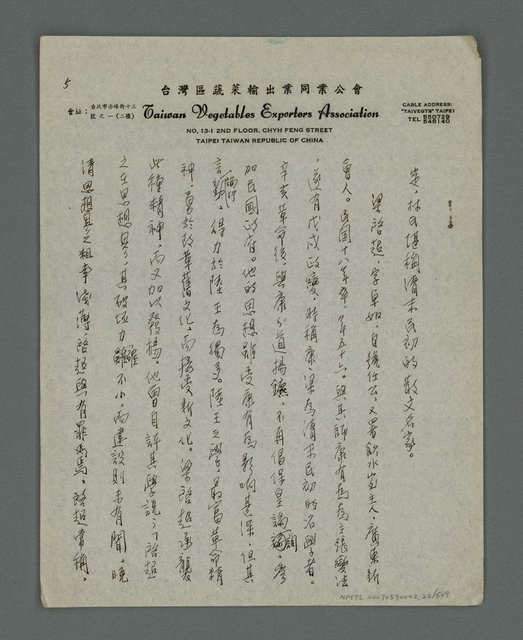 5
台灣區蔬菜輸出業同業公會
會址：台北市赤峰街十三號之一(二樓)
Taiwan Vegetables Exporters Association
NO, 13-1 2ND FLOOR. CHYH FENG STREET
TAIPEI TAIWAN REPUBLIC OF CHINA
CABLE ADDRESS:
"TAIVEGTS" TAIPEI
TEL 550729
546140
定，林氏堪稱清末民初的散文名家。
梁啓超，字卓如，自號任公，又署飲冰室主人，廣東新
會人。民國十八年卒，年五十六。與其師康有為為主張變法
，遂有戊戌政變，時稱康、梁為清末民初的名學者。
辛亥革命後，與康分道揚鑣，不再倡保皇論調，參
加民國政府。他的思想雖受康有為影响甚深，但其
言論行動，得力於陸王為獨多。陸王之學，最富革命精
神，勇於改革舊文化，而接受新文化。梁啓超承襲
此種精神，而又加以發揚，他曾自評其學說：「啓超
之在思想界，其破坯力雖不小，而建設則未有聞。晚
清思想界之粗率淺薄，啓超與有罪焉。」啓超常稱，
NMTL 20070590002, 22/509